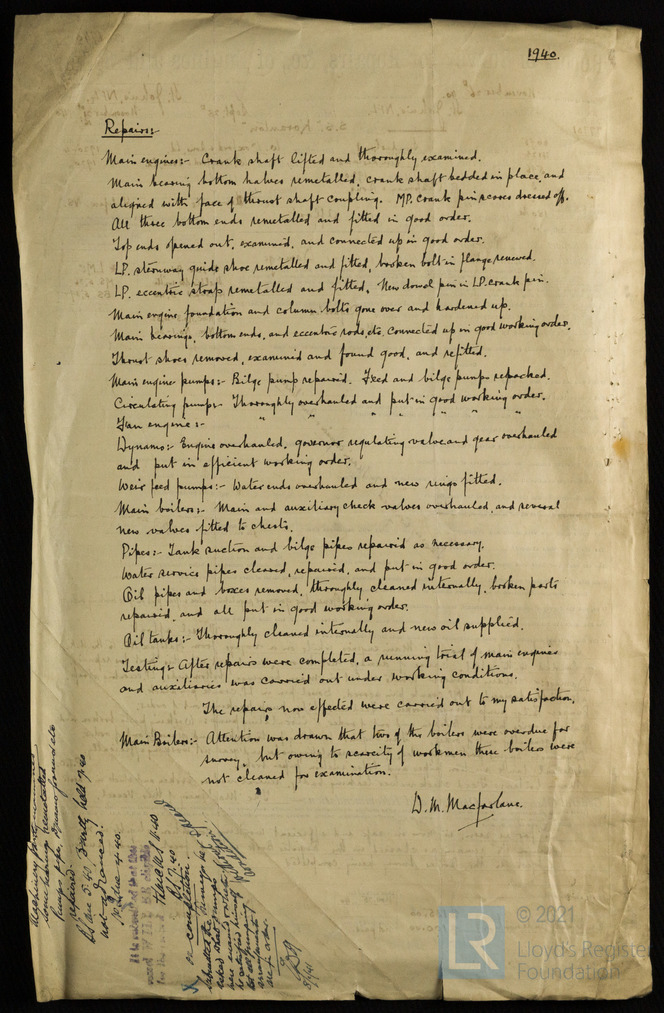 1940.
Repairs:-
Main engines:- Crank shaft lifted and thoroughly examined.
Main bearing bottom halves remetalled, crank shaft bedded in place, and
aligned with face of thrust shaft coupling. MP. crank pin scores dressed off.
All three bottom ends remetalled and fitted in good order.
Top ends opened out, examined, and connected up in good order.
LP. sternway guide shoe remetalled and fitted, broken bolt in flange renewed.
LP. eccentric strap remetalled and fitted. New dowel pin in LP. crank pin.
Main engine foundation and column bolts gone over and hardened up.
Main bearings, bottom ends, and eccentric rods, etc. connected up in good working order.
Thrust shoes removed, examined and found good, and refitted.
Main engine pumps:- Bilge pump repaired. Feed and bilge pumps repacked.
Circulating pump:- Thoroughly overhauled and put in good working order.
Fan engine:- " " " " " " "
Dynamo:- Engine overhauled, governor regulating valve and gear overhauled
and put in efficient working order.
Weir feed pumps:- Water ends overhauled and new rings fitted.
Main boilers:- Main and auxiliary check valves overhauled, and several
new valves fitted to chests.
Pipes:- Tank suction and bilge pipes repaired as necessary.
Water service pipes cleared, repaired, and put in good order.
Oil pipes and boxes removed, throughly cleaned internally, broken parts
repaired, and all put in good working order.
Oil tanks:- Thoroughly cleaned internally and new oil supplied.
Testing:- After repairs were completed, a running trial of main engines
and auxiliaries was carried out under working conditions.
The repairs now effected were carried out to my satisfaction.
Main Boilers:- Attention was drawn that two of the boilers were overdue for
survey, but owing to scarcity of workmen these boilers were
not cleaned for examination.
D. M. Macfarlane.
repaired.
not advanced.
on completion.
© 2021
LR
Lloyd's Register
Foundation